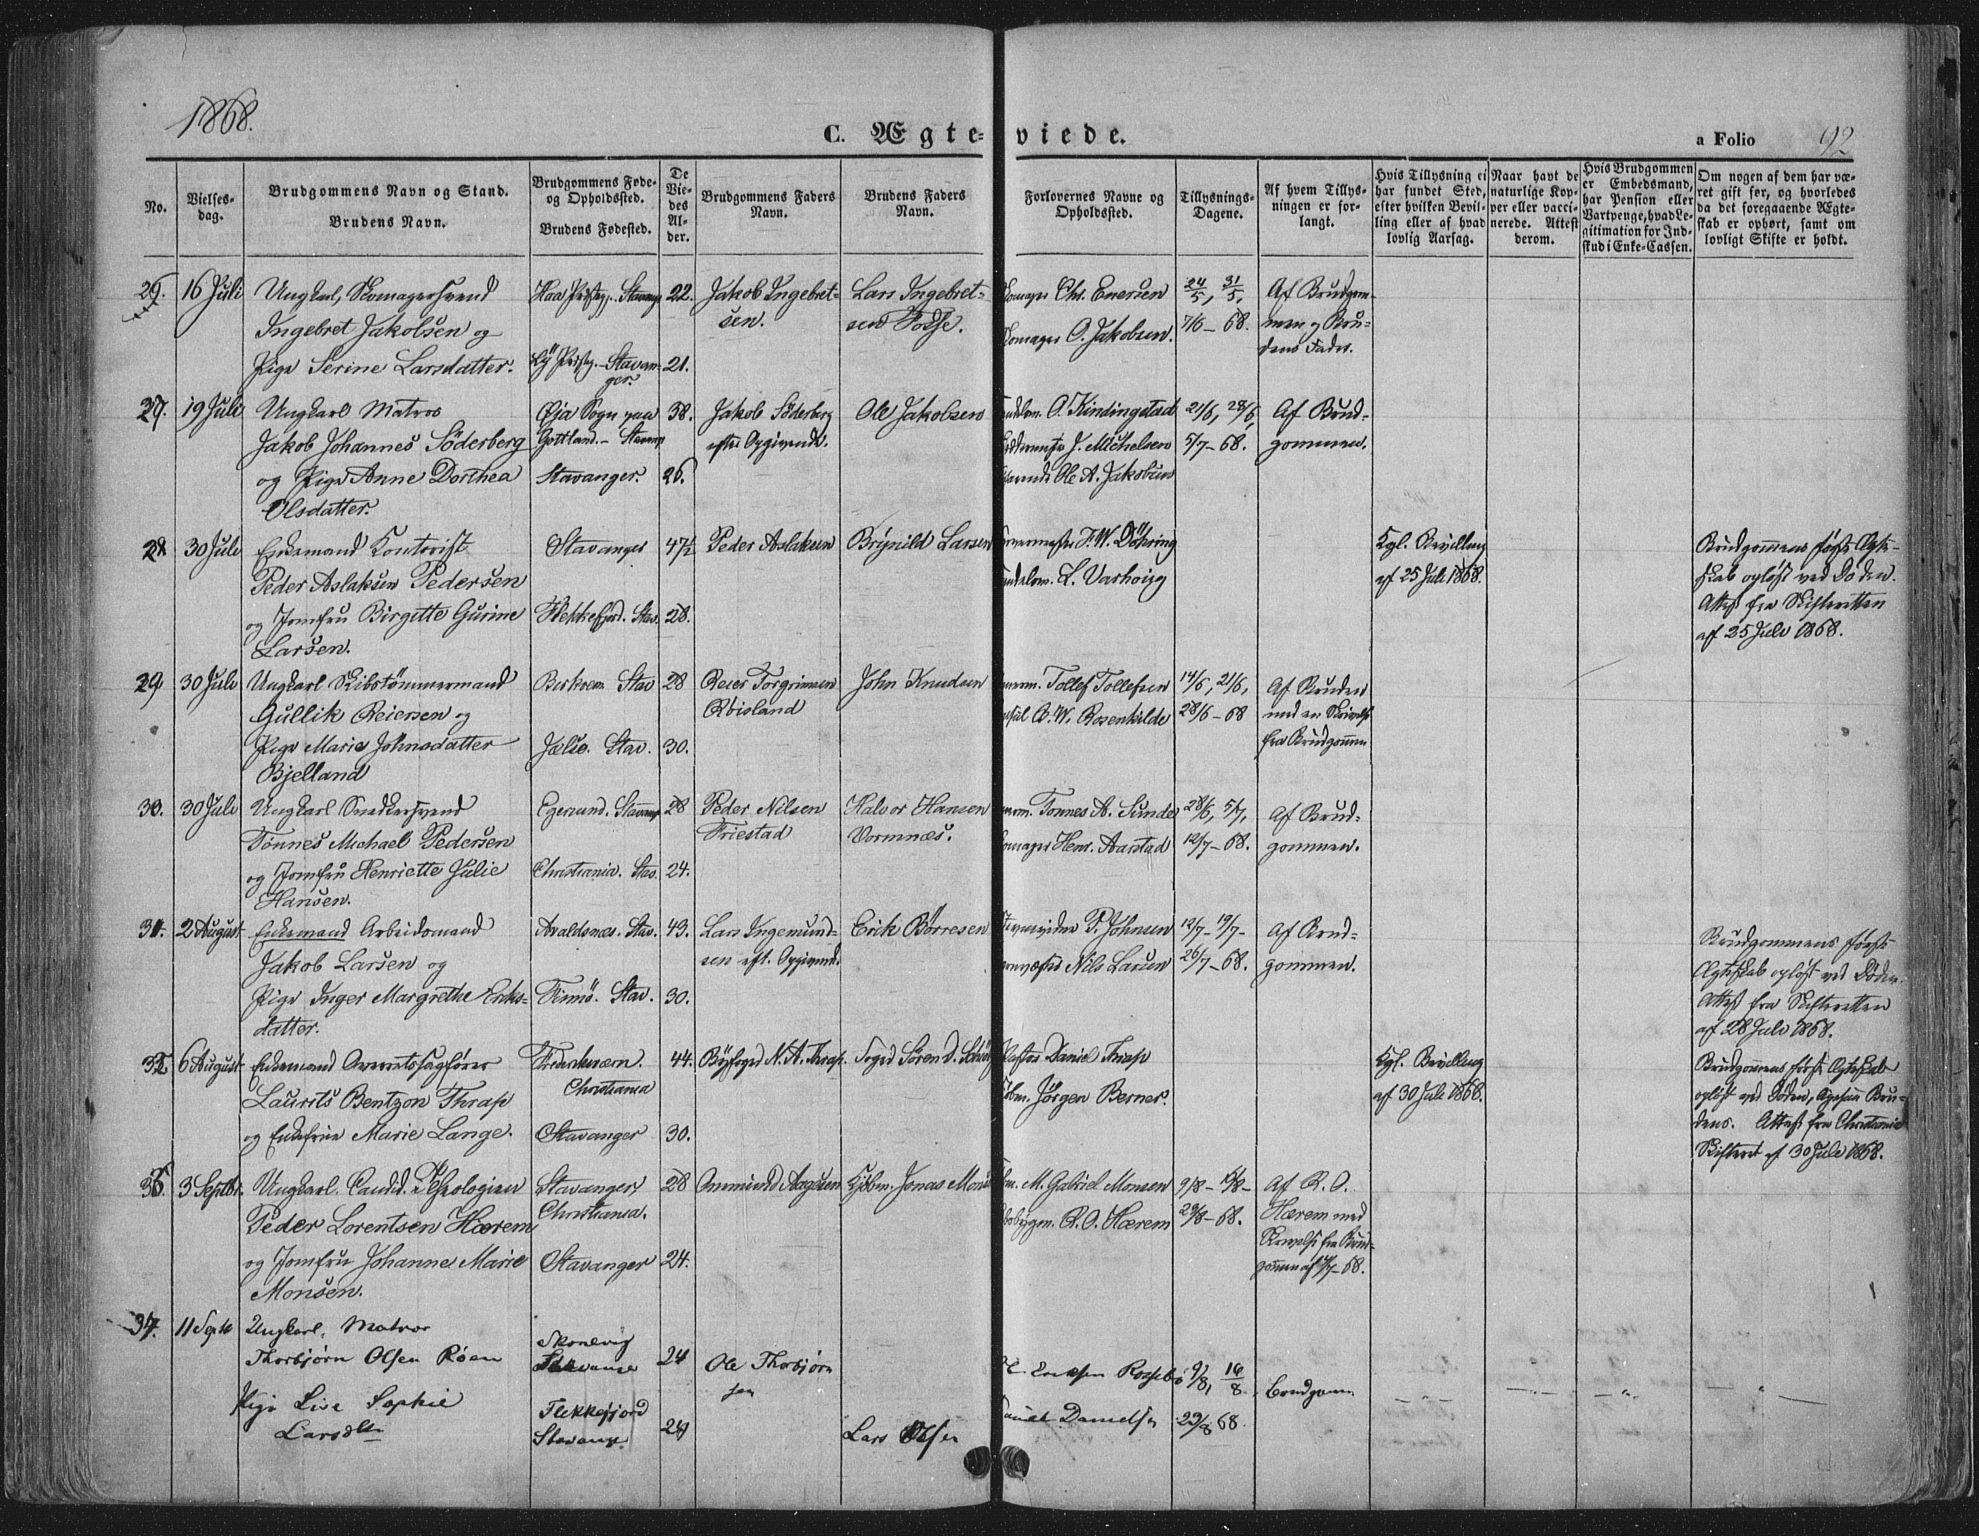 1868.
C. Ægteviede.
a Folio 92
No.
Vielsesdag.
Brudgommens Navn og Stand.
Brudens Navn.
Brudgommens Føde- og Opholdssted.
Brudens Fødested.
De Viedes Alder.
Brudgommens Faders Navn.
Brudens Faders Navn.
Forlovernes Navne og Opholdssted.
Tillysnings-Dagene.
Af hvem Tillysningen er forlangt.
Hvis Tillysning ei har fundet Sted, efter hvilken Bevilling eller af hvad lovlig Aarsag.
Naar havt de naturlige Kopper eller vaccinerede. Attest derom.
Hvis Brudgommen er Embedsmand, har Pension eller Vartpenge, hvad Legitimation for Indskud i Enke-Cassen.
Om nogen af dem har været gift før, og hvorledes da det foregaaende Ægteskab er ophørt, samt om lovligt Skifte er holdt.
26. 16 Juli Ungkarl, Skomagersvend Haa Prstgj. Stavang 22. Jakob Ingebret- Lars Ingebret- Chr. Enersen 24/5, 31/5, Af Brudgom-
Ingebret Jakobsen og sen. sen Fosse. O. Jakobsen. 7/6 – 68. men og Bru-
Pige Serine Larsdatter. Lÿ Prstgj. – Stavan- 21. dens Fader.
ger.
27. 19 Juli Ungkarl Matros Øja Sogn paa 38. Jakob Söderberg Ole Jakobsen O. Kindingstad 21/6, 28/6, Af Brud-
Jakob Johannes Söderberg Gottland. – Stavan efter Opgivende. J. Michelsen 5/7 – 68. gommen.
og Pige Anne Dorthea Stavanger. 26. Ole A. Jakobsen
Olsdatter.
28 30 Juli Enkemand Kontorist Stavanger 47½ Peder Aslaksen Brynild Larsen F. W. Döhring Kgl. Bevilling Brudgommens første Ægte-
Peder Aslaksen Pedersen L. Varhoug af 25 Juli 1868. skab opløst ved Døden.
og Jomfru Birgitte Gurine Flekkefjord. Stav. 28. Attest fra Skifteretten
Larsen. af 25 Juli 1868.
29 30 Juli Ungkarl Skibstømmermand Stav 28 Reier Torgrimsen John Knudsen Tollef Tollefsen 14/6, 21/6, Af Bruden
Gullik Reiersen og Røisland B. W. Rosenkilde 28/6 – 68 med en Skrivelse
Pige Marie Johnsdatter Jælsø. Stav. 30. fra Brudgommen
Bjelland
30. 30 Juli Ungkarl Snedkersvend Egersund. Stavang 28 Peder Nilsen Halvor Hansen Tønnes A. Sunde 28/6, 5/7, Af Brud-
Tønnes Michael Pedersen Friestad Vormnæs. Henr. Aarstad 12/7 – 68. gommen.
og Jomfru Henriette Julie Christiania. Stav. 24.
Hansen.
31. 2 August Enkemand Arbeidsmand Avaldsnæs. Stav. 43. Lars Ingemund- Erik Børresen P. Johnsen 12/7 – 19/7 – Af Brud- Brudgommens første
Jakob Larsen og sen eft. Opgivend. Nils Larsen 26/7 – 68. gommen. Ægteskab opløst ved Døden.
Pige Inger Margrethe Eriks- Finnø. Stav. 30. Attest fra Skifteretten
datter. af 28 Juli 1868.
32 6 August Enkemand Overretssagfører Frederiksværn. 44. Byfoged N. A. Thrap. Foged Sören D. Pastor Daniel Thrap Kgl. Bevilling Brudgommens første Ægteskab
Laurits Bentzon Thrap Christiania Jörgen Berner. af 30 Juli 1868. opløst ved Døden, ogsaa Bru-
og Enkefrue Marie Lange. Stavanger 30. dens. Attest fra Christiania
Skifteret af 30 Juli 1868.
3 Septbr. Ungkarl. Candid. Theologiæ Stavanger, 28 Ommund Aagesen Kjøbm. Jonas Mons M. Gabriel Monsen 9/8 – 16/8 – Af R. O.
Peder Lorentsen Hærem Christiania. R. O. Hærem 23/8 – 68. Hærem med
og Jomfru Johanne Marie Stavanger 24. Skrivelse fra Brud-
Monsen. gommen af – 68.
34. 11 Septb Ungkarl. Matros Skonevig
Thorbjørn Olsen Røen Stavange 24 Ole Thorbjørn Eriksen Rossebø 9/8, 16/8. brudgom.
sen
Pige Live Sophie Flekkefjord
Larsdtr. Stavang. 24 Lars Olsen Danielsen 23/8 68.